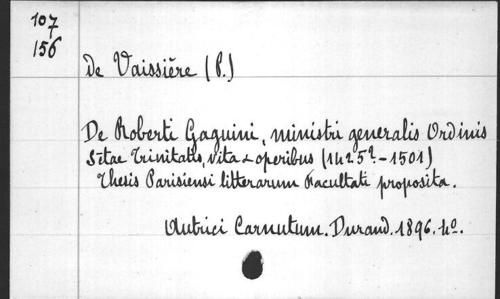 107
7
156
De Vaissière (P.)
De Roberti Gaguini, ministri generalis Ordinis
Sctae Trinitatis, vita & operibus (1425?-1501)
Thesis Parisiensi litterarum Facultati proposita.
Autrici Carnutum. Durand. 1896. 4o.